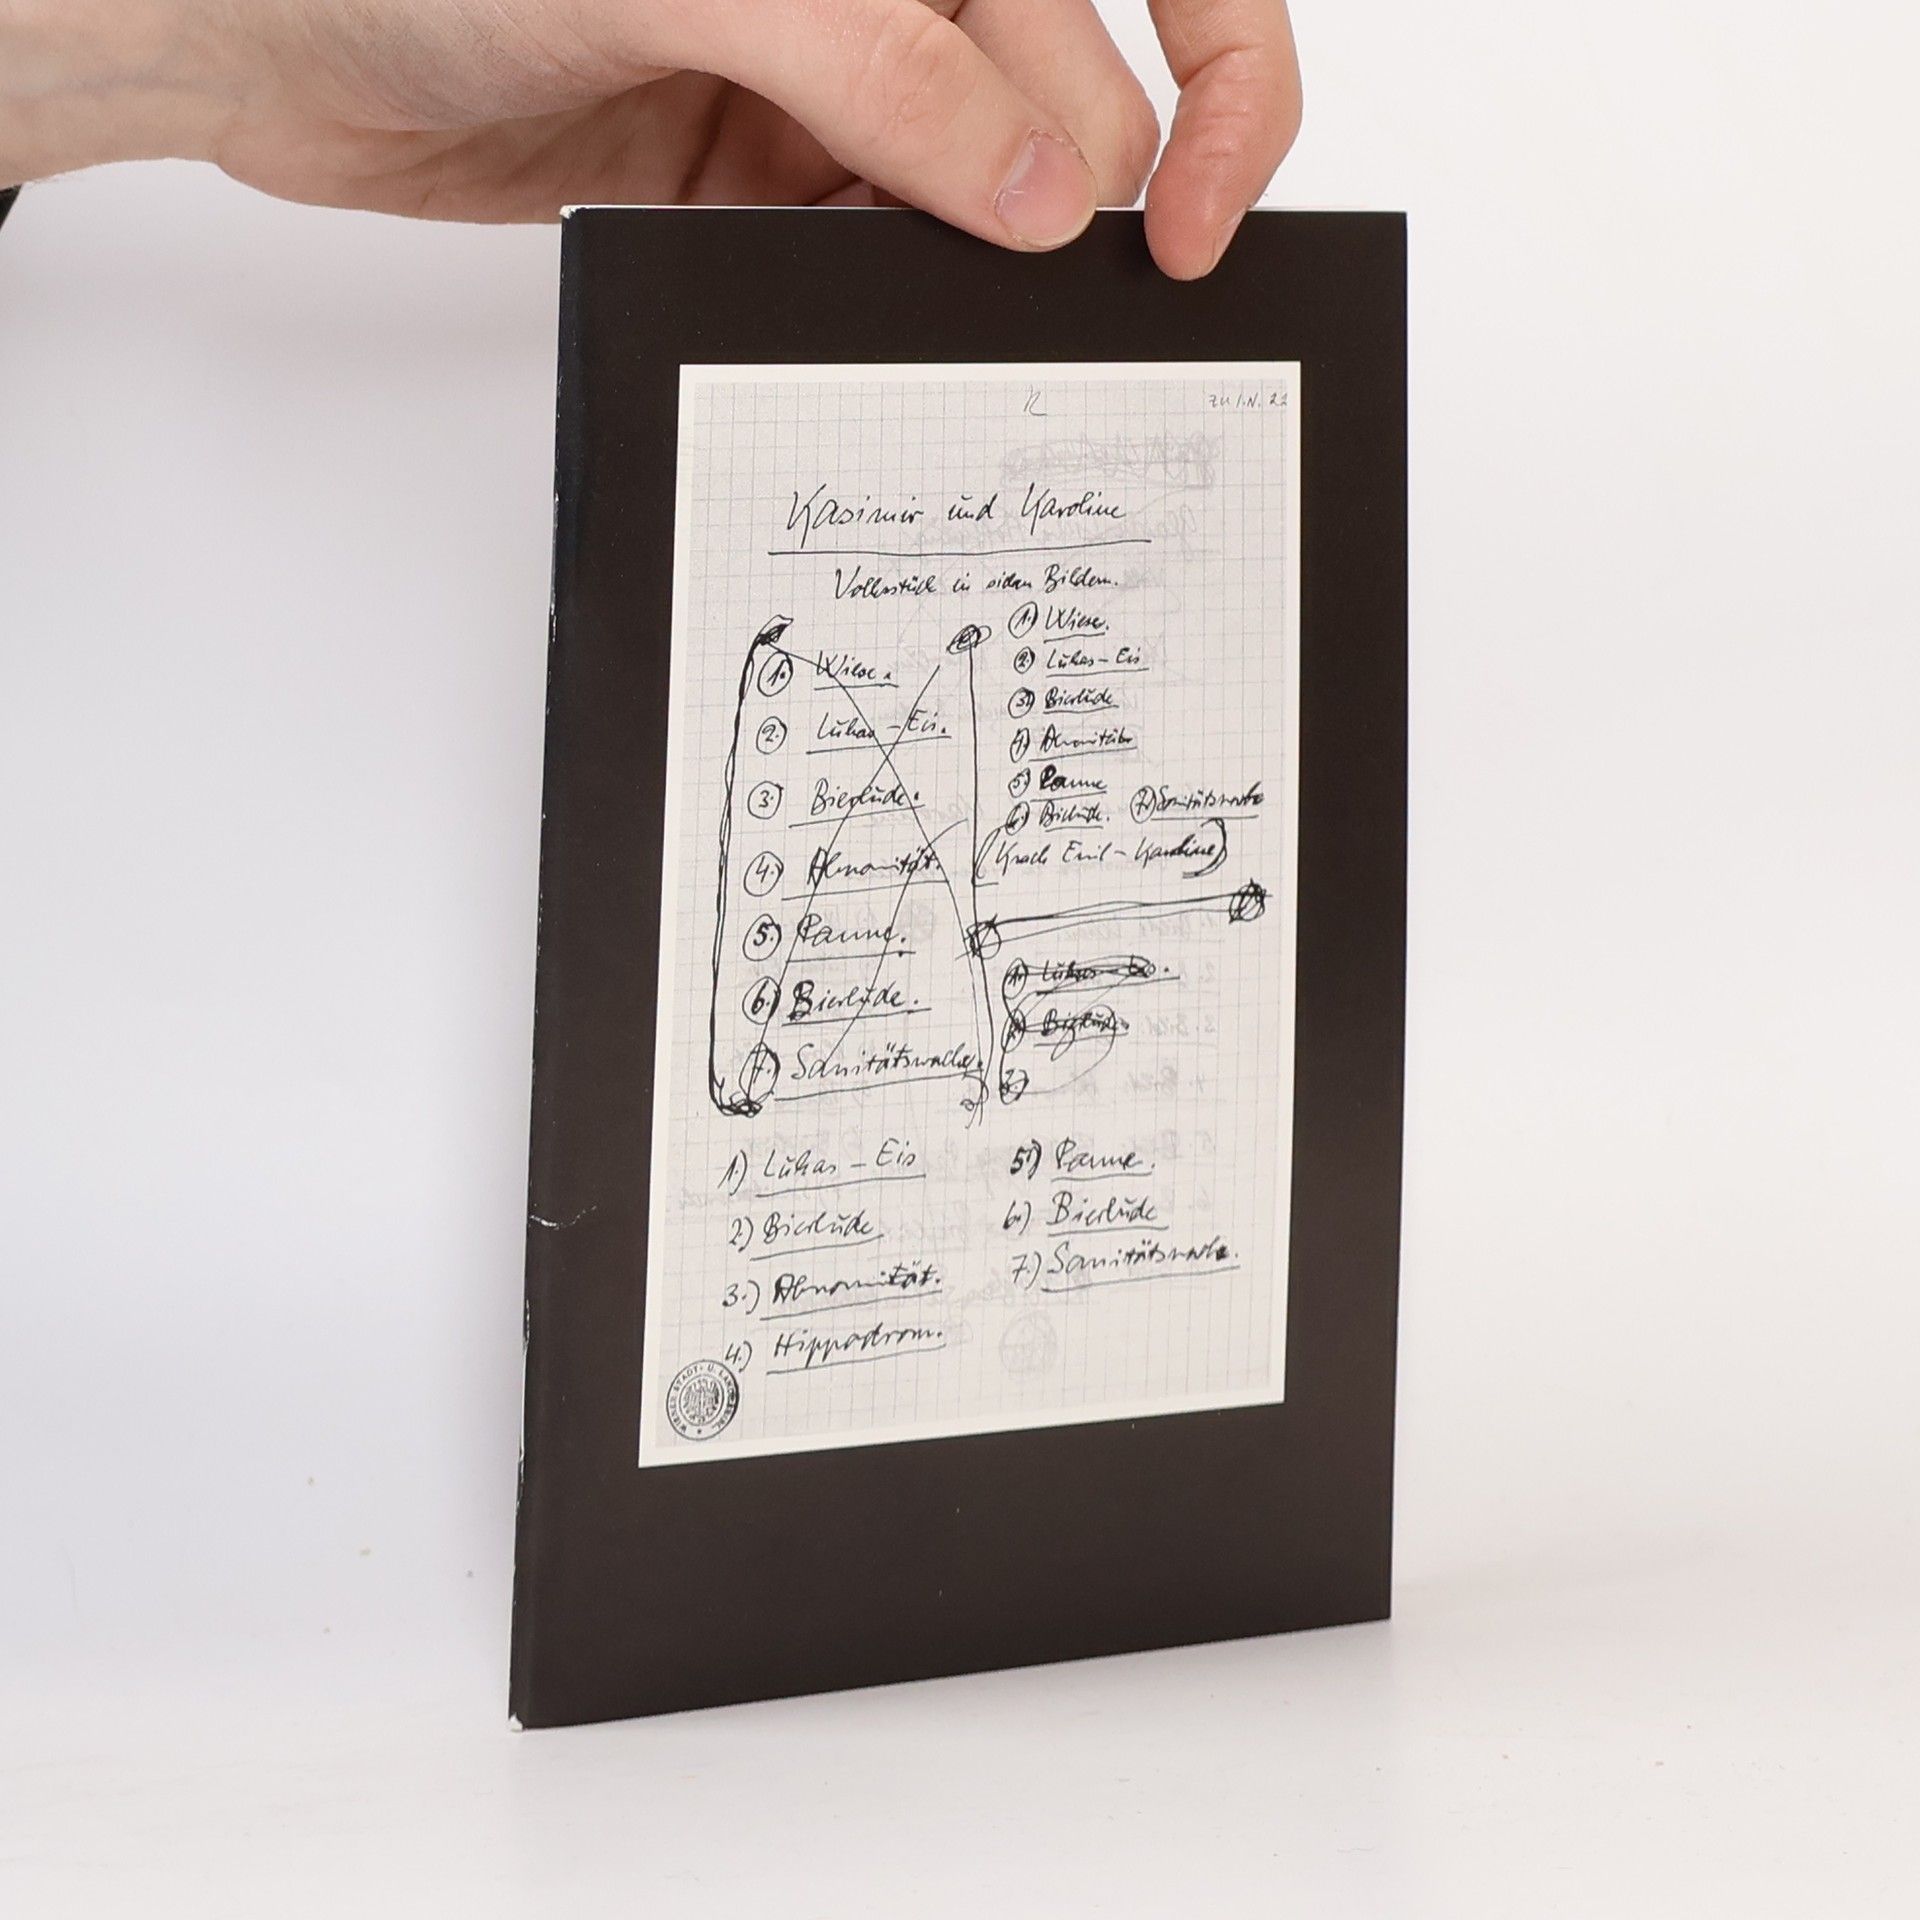 ZU I.N. 22
Kasimir und Karoline
Volksstück in sieben Bildern.
1.) Wiese.
2.) Lukas – Eis.
3.) Bierbude.
4.) Abnormität.
5.) Panne.
6.) Bierbude.
7.) Sanitätswache.
1.) Wiese.
2.) Lukas – Eis
3.) Bierbude
4.) Abnormität
5.) Panne
6.) Bierbude. 7.) Sanitätswache
(Krach Emil – Karoline)
1.) Lukas – Eis.
2.) Bierbude.
3.)
1.) Lukas – Eis
2.) Bierbude
3.) Abnormität.
4.) Hippodrom.
5.) Panne.
6.) Bierbude
7.) Sanitätswache.